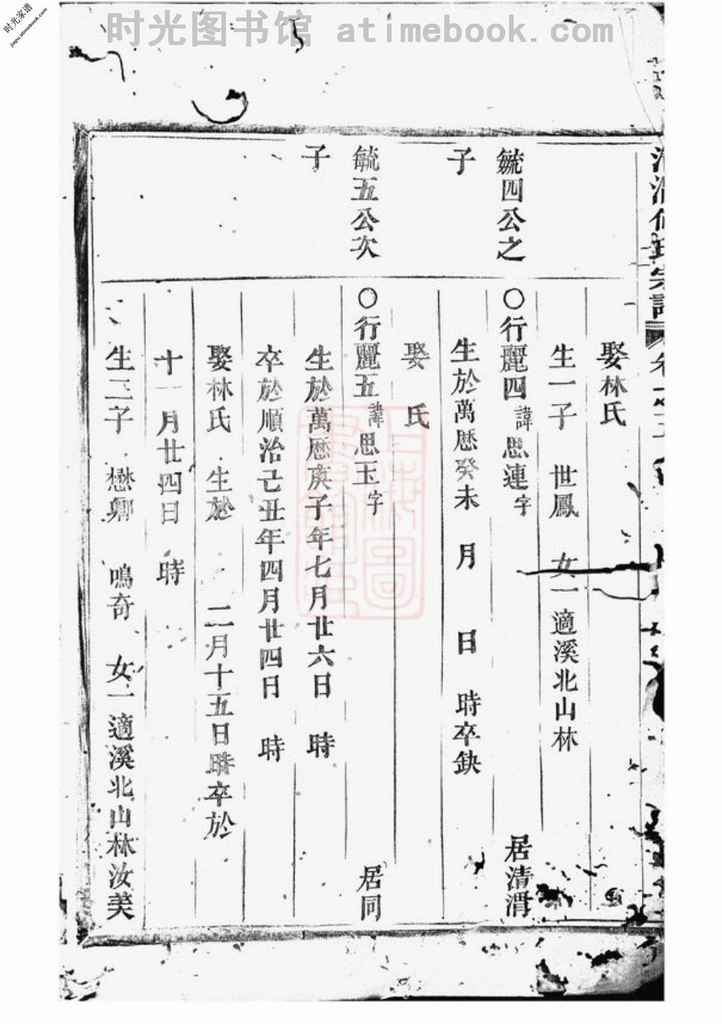 时光图书馆 atimebook.com
时光家谱
娶林氏
生一子 世鳳 女一適溪北山林
毓四公之
子
○行麗四 諱思連字 居清渭
生於萬歷癸未 月 日 時卒缺
娶 氏
毓五公次
子
○行麗五 諱思玉字 居同
生於萬歷庚子年七月廿六日 時
卒於順治己丑年四月廿四日 時
娶林氏 生於 二月十五日時卒於
十一月廿四日 時
生三子 懋卿 鳴奇 女一適溪北山林汝美